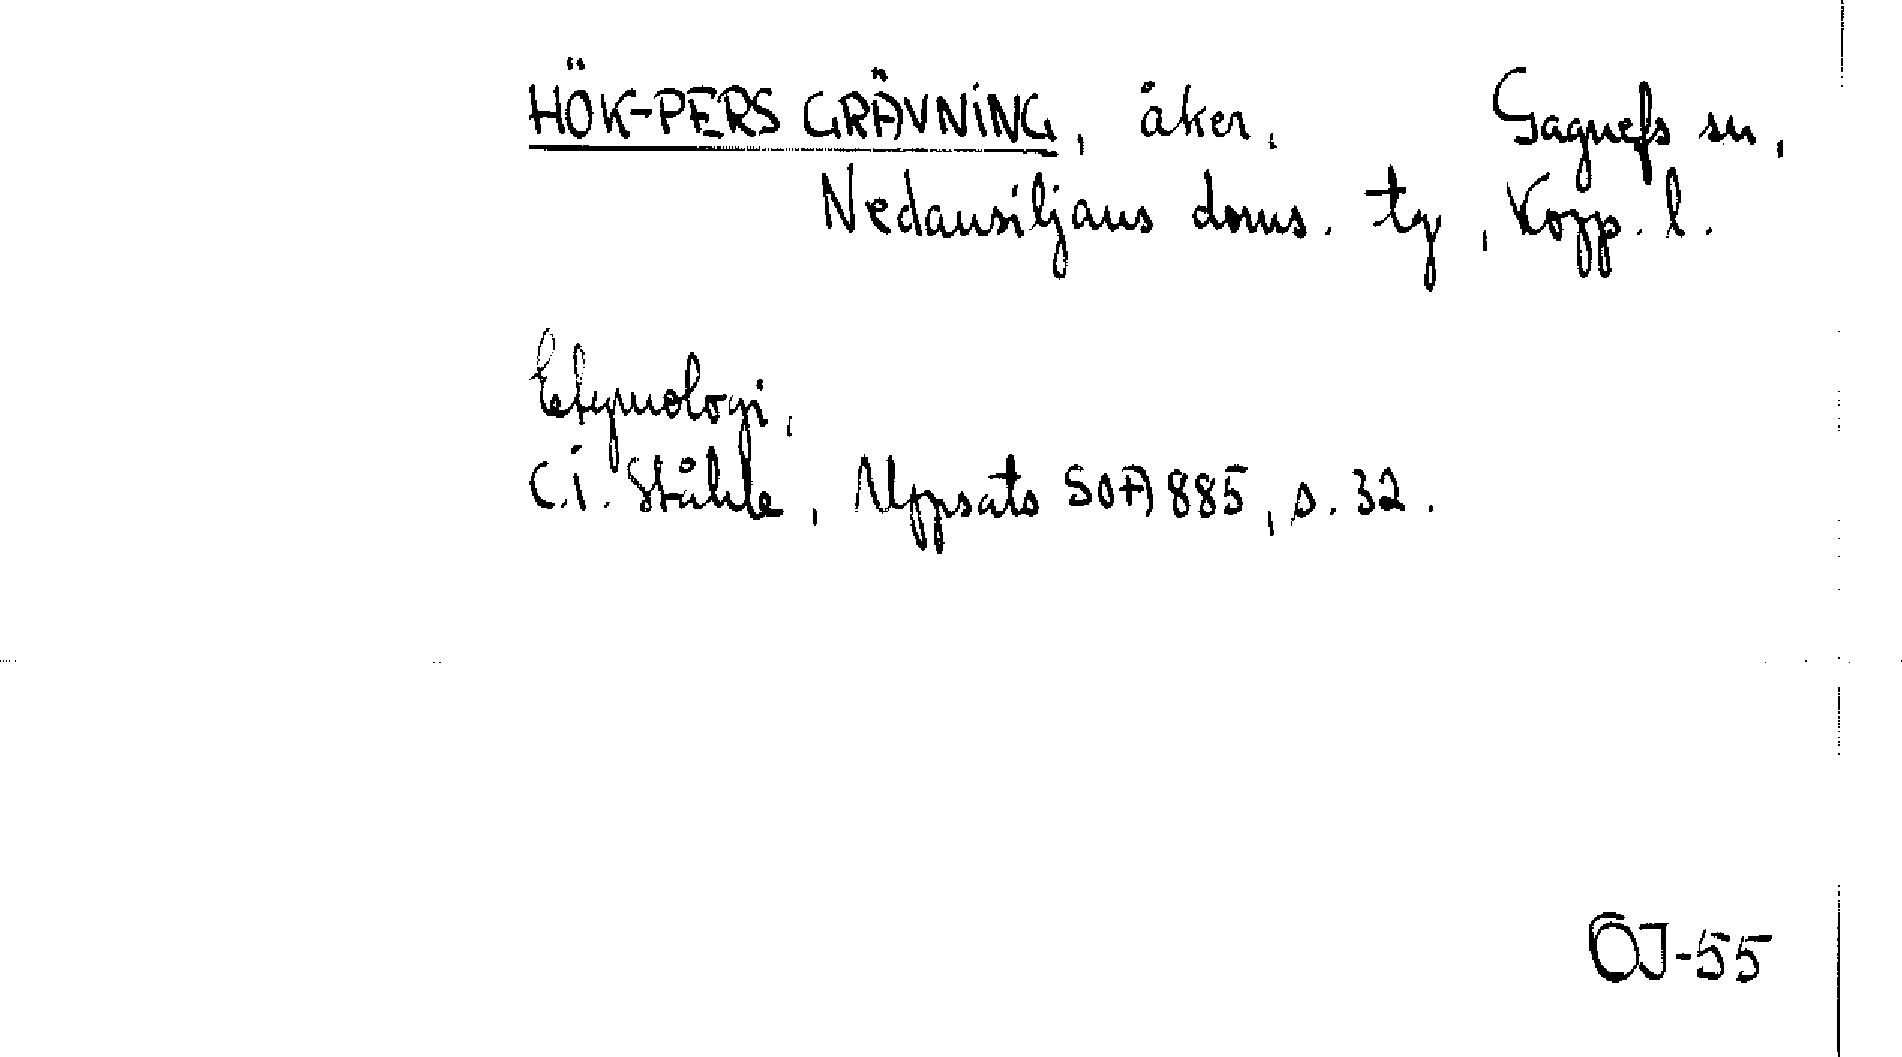 HÖK-PERS GRÄVNING, åker. Gagnefs sn,
Nedansiljans doms. tg, Kopp. l.
Etymologi,
C.I. Ståhle, Uppsats SOA 885, s. 32.
ÖJ-55